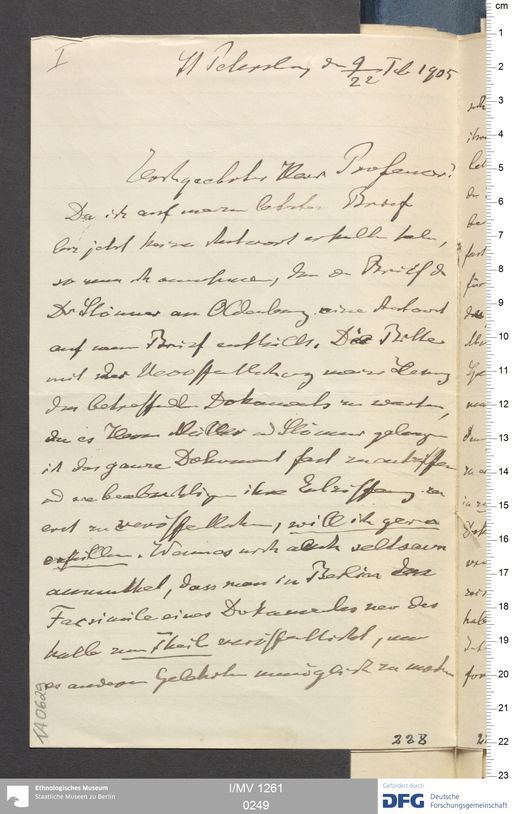 I
St Petersburg den 9/22 Feb 1905
Hochgeehrter Herr Professor!
Da ich auf meinen letzten Brief
bis jetzt keine Antwort erhalten habe,
so muss ich annehmen, dass der Brief des
Dr Stönner an Oldenburg eine Antwort
auf meinen Brief enthielt. Die Bitte
mit der Veröffentlichung meiner Lesung
des betreffenden Dokuments zu warten,
da es Herrn Müller und Stönner gelungen
ist das ganze Dokument fast zu entziffern
und sie beabsichtigen ihre Entzifferung
erst zu veröffentlichen, will ich gern
erfüllen. Wenn es mich auch seltsam
anmuthet, dass man in Berlin das
Facsimile eines Dokumentes nur des
halb zum Theil veröffentlicht, um
es anderen Gelehrten unmöglich zu machen
228
IA 0629
cm
1
2
3
4
5
6
7
8
9
10
11
12
13
14
15
16
17
18
19
20
21
22
23
Ethnologisches Museum
Staatliche Museen zu Berlin
I/MV 1261
0249
Gefördert durch
DFG Deutsche
Forschungsgemeinschaft